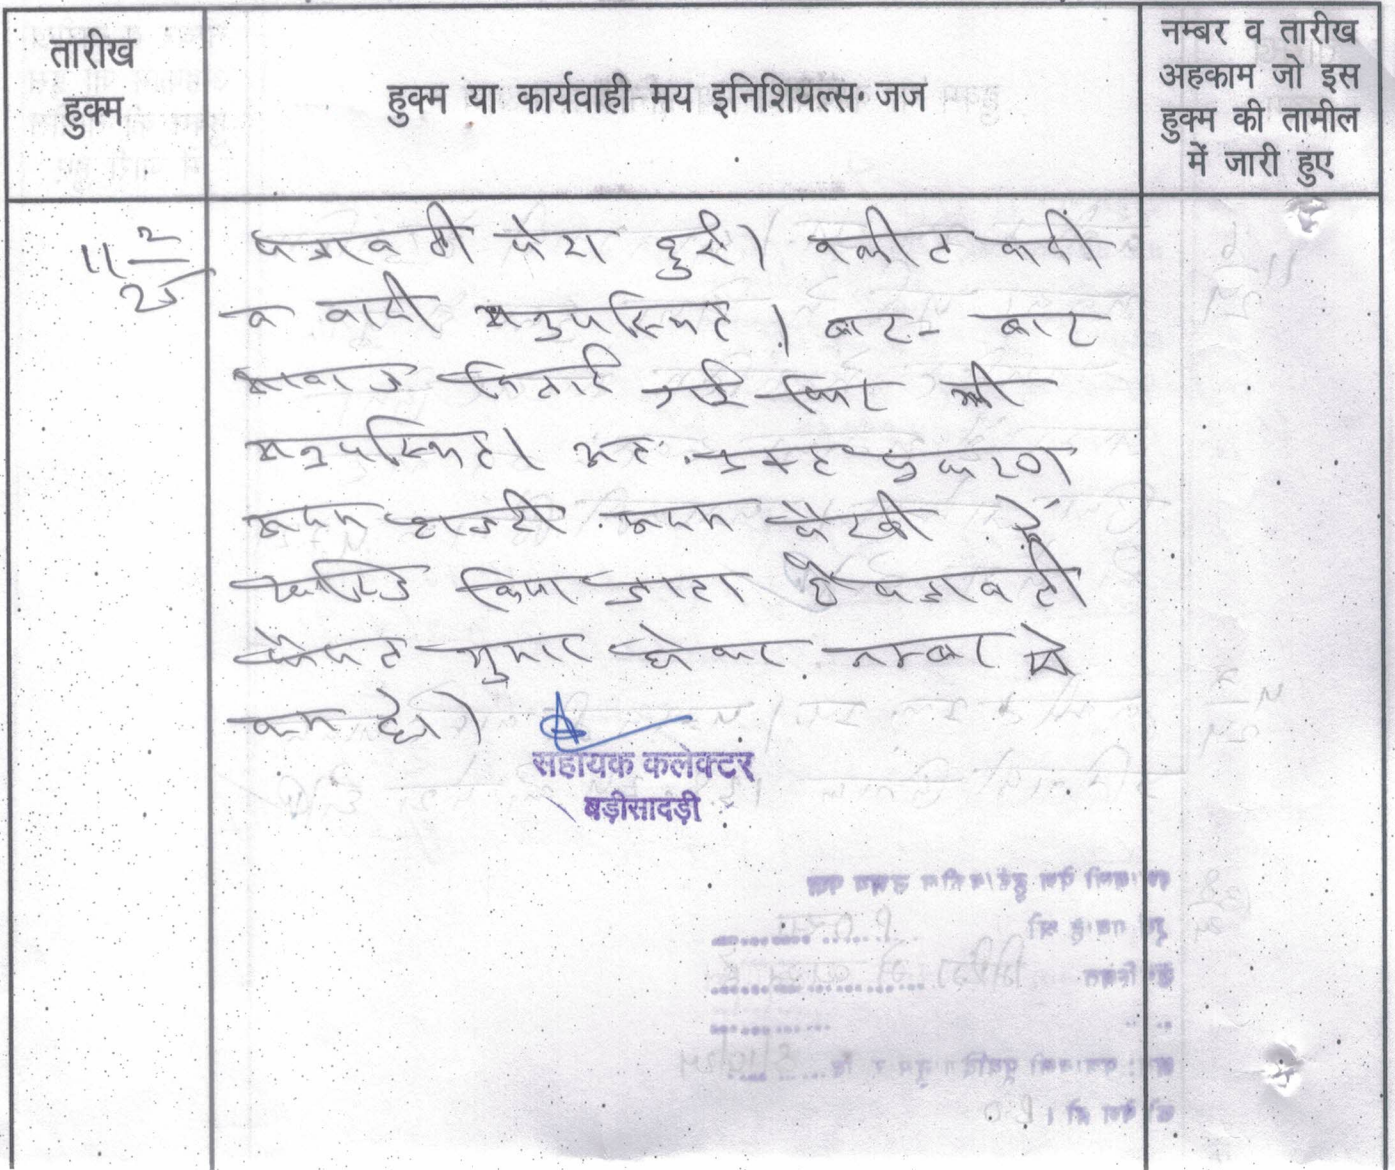 तारीख
हुक्म
हुक्म या कार्यवाही मय इनिशियल्स जज
नम्बर व तारीख
अहकाम जो इस
हुक्म की तामील
में जारी हुए
11 2/25
पत्रावली पेश हुई। वकील वादी
व वादी अनुपस्थित। बार-बार
आवाज दिलाई गई फिर भी
अनुपस्थित। अतः प्रकरण
अदम हाजरी अदम पैरवी में
खारिज किया जाता है पत्रावली
फैसल शुमार होकर नम्बर से
कम हो।
सहायक कलेक्टर
बड़ीसादड़ी